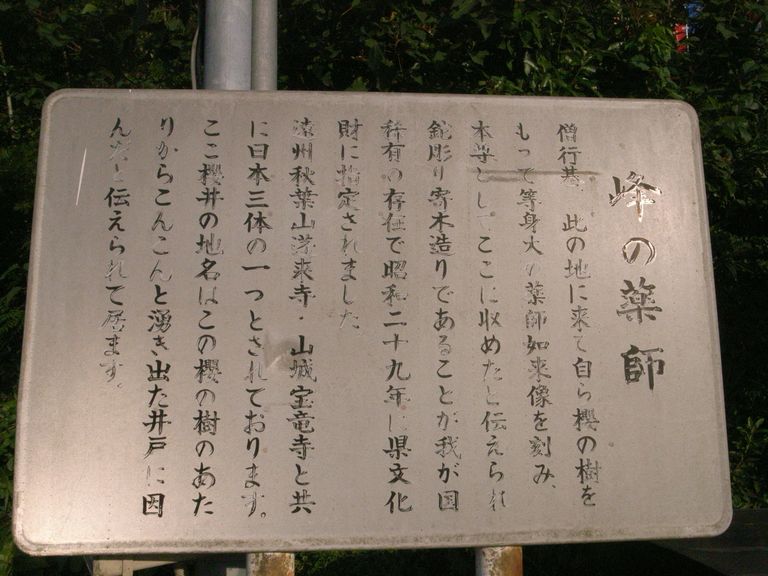 峰の薬師
僧行基、此の地に来て自ら櫻の樹を
もって等身大の薬師如来像を刻み、
本尊として、ここに収めたと伝えられ
鉈彫り寄木造りであることが我が国
稀有の存在で昭和二十九年に県文化
財に指定されました
遠州秋葉山蓬来寺・山城宝竜寺と共
に日本三体の一つとされております。
ここ櫻井の地名はこの櫻の樹のあた
りからこんこんと湧き出た井戸に因
んだと伝えられて居ます。